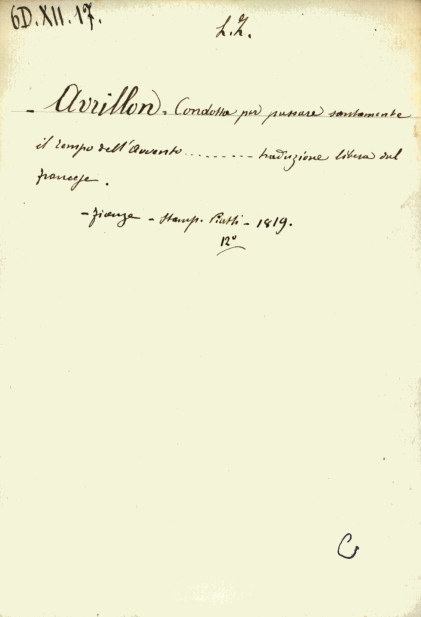 6D.XII.17.
L.Z.
- Avrillon. Condotta per passare santamente
il tempo dell'Avvento ......... traduzione libera dal
francese.
- Firenze - Stamp. Piatti - 1819.
12°